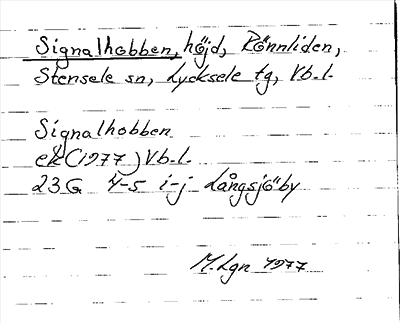 Signalhobben, höjd, Rönnliden,
Stensele sn, Lycksele tg, Vb.l.
Signalhobben
ek (1977) Vb.l.
23 G 4-5 i-j Långsjöby
M. Lgn 1977